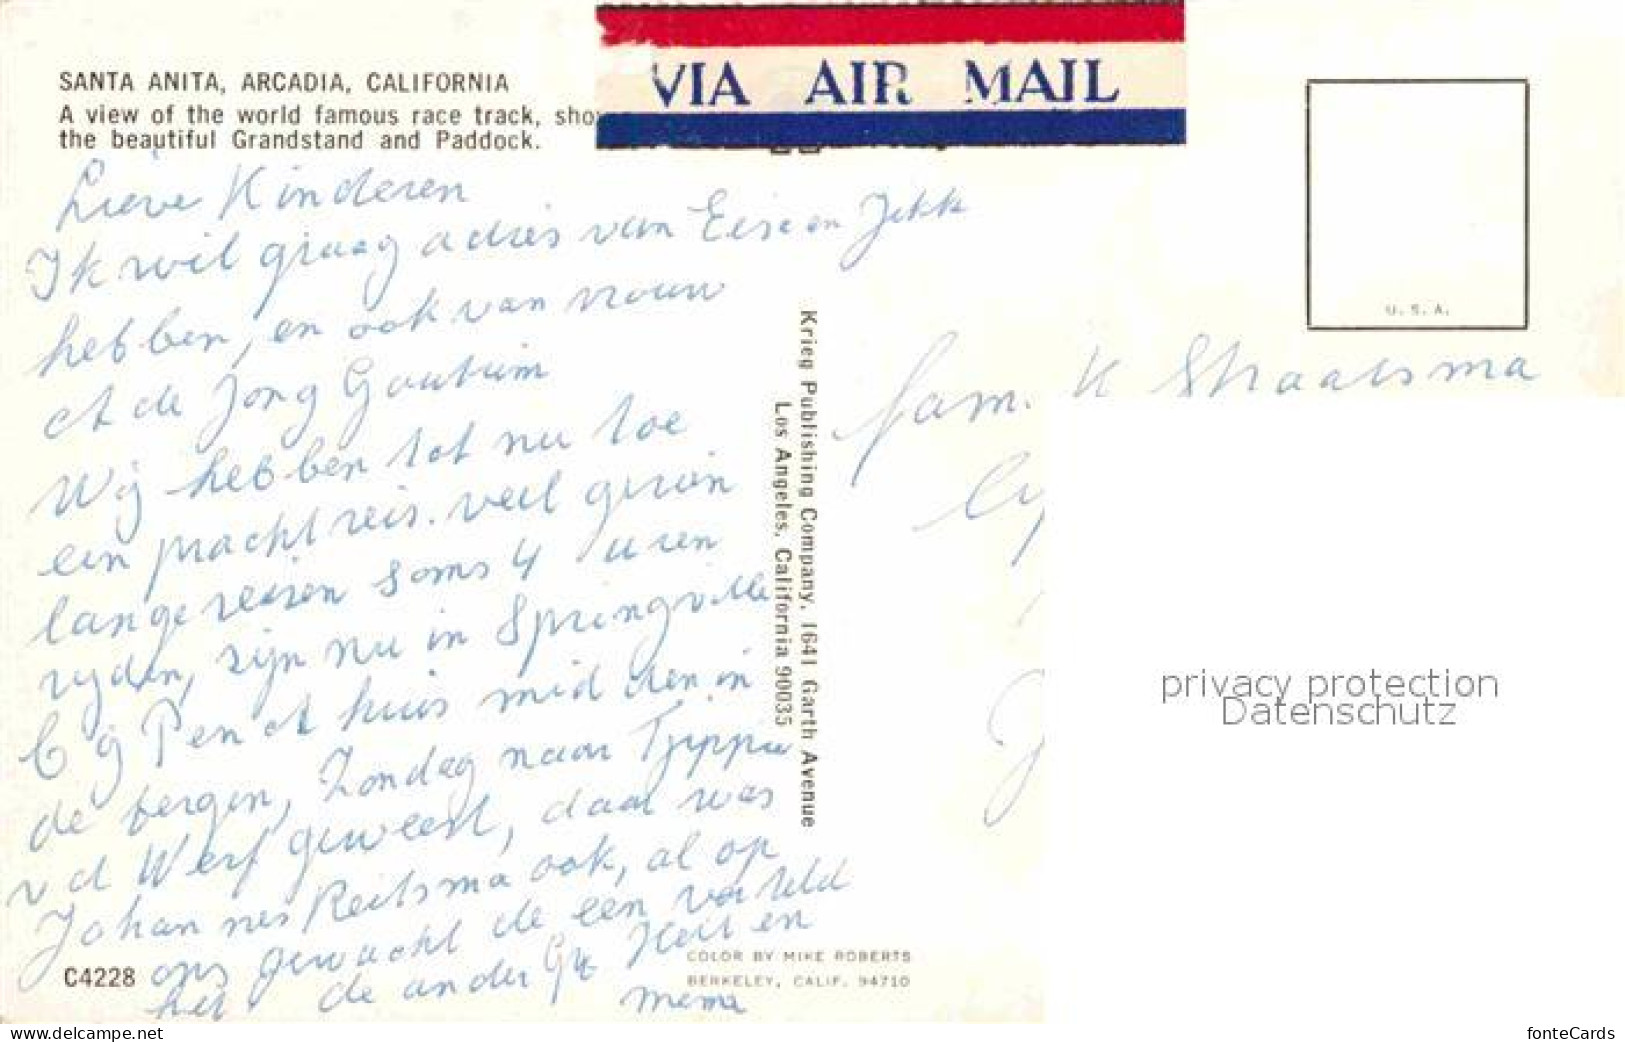 SANTA ANITA, ARCADIA, CALIFORNIA
A view of the world famous race track, sho
the beautiful Grandstand and Paddock.
VIA AIR MAIL
U. S. A.
Lieve Kinderen
Ik wil graag adres van Eise en Jekk
hebben, en ook van vrouw
de Jong Goutum
Wij hebben tot nu toe
een pracht reis. veel gezien
lange reizen soms 4 uren
ryden, zijn nu in Springville
by Pen huis midden in
de bergen, Zondag naar Tjippie
v d Werf geweest, daar was
Johannes Reitsma ook, al op
ons gewacht de een verteld
het de ander Heit en
mema
Krieg Publishing Company, 1641 Garth Avenue
Los Angeles, California 90035
fam. K Straatsma
C4228
COLOR BY MIKE ROBERTS
BERKELEY, CALIF. 94710
privacy protection
Datenschutz
www.delcampe.net
fonteCards